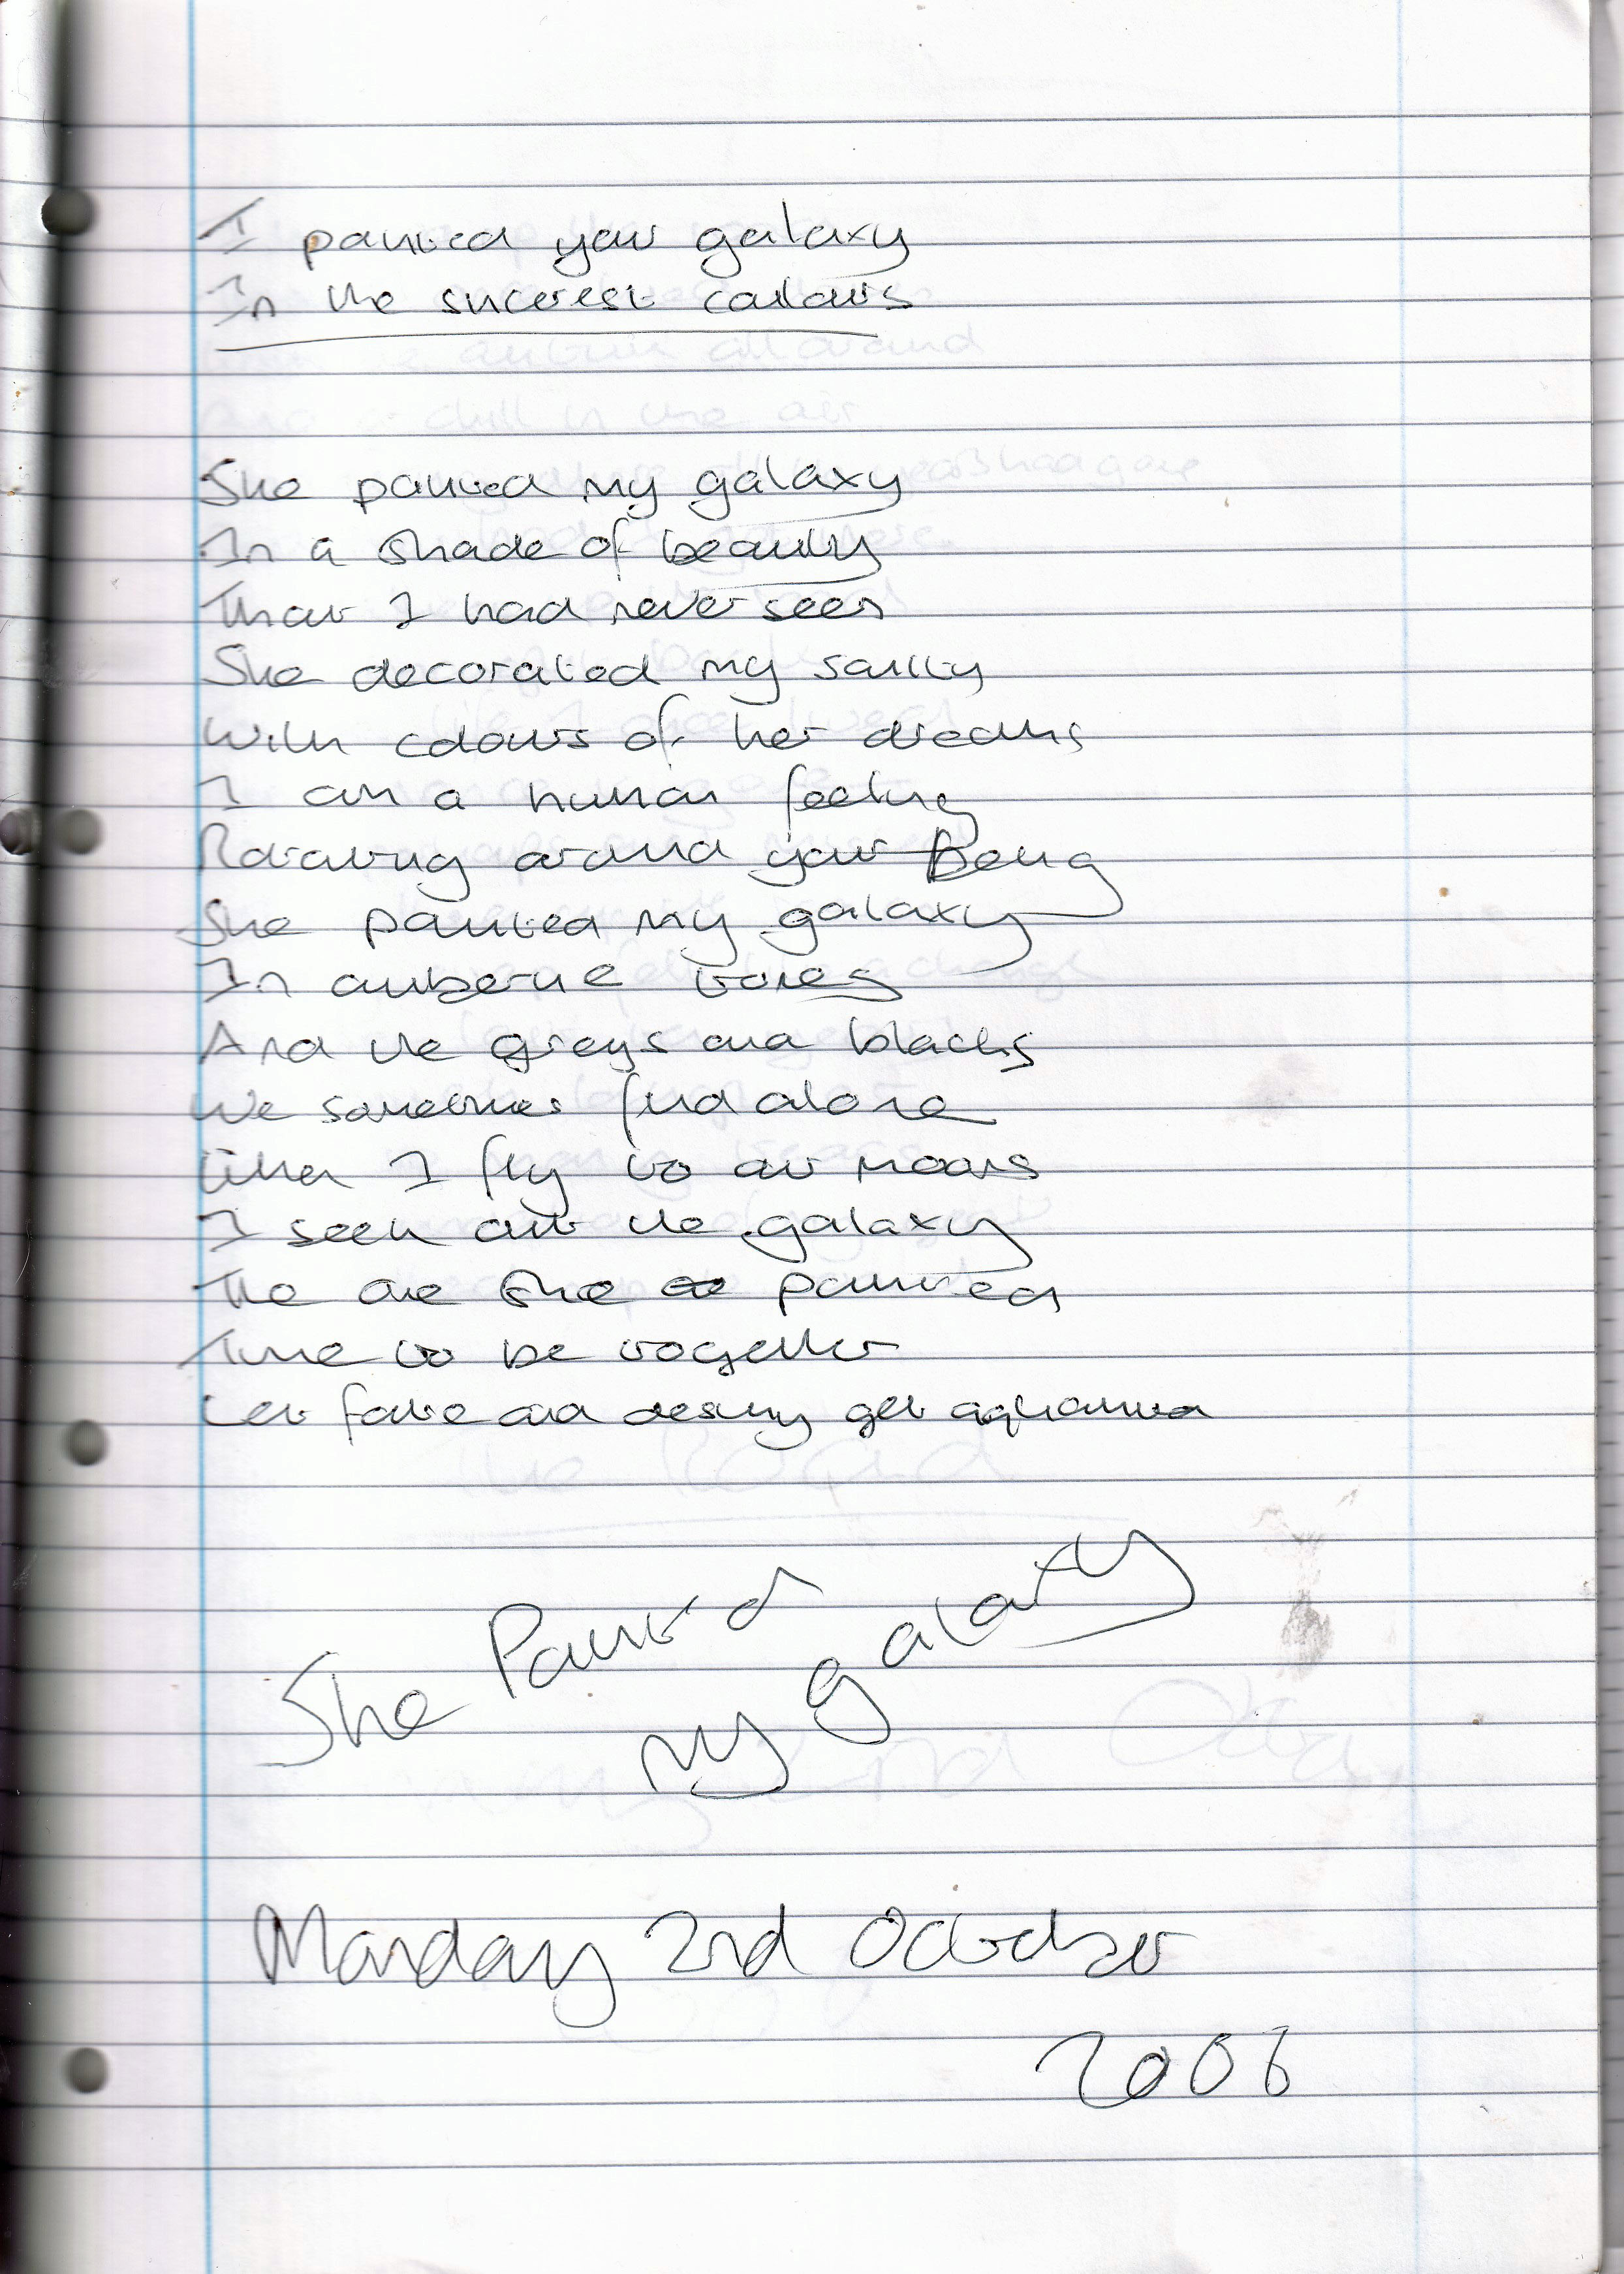 I painted your galaxy
In the sincerest colours
She painted my galaxy
In a shade of beauty
That I had never seen
She decorated my sanity
With colours of her dreams
I am a human feeling
Rotating around your Being
She painted my galaxy
In auberne tones
And the greys and blacks
We sometimes find alone
When I fly to our moons
I seek out the galaxy
The one she painted
Time to be together
Let fate and destiny get aquainted
She Painted
my galaxy
Monday 2nd October
2006